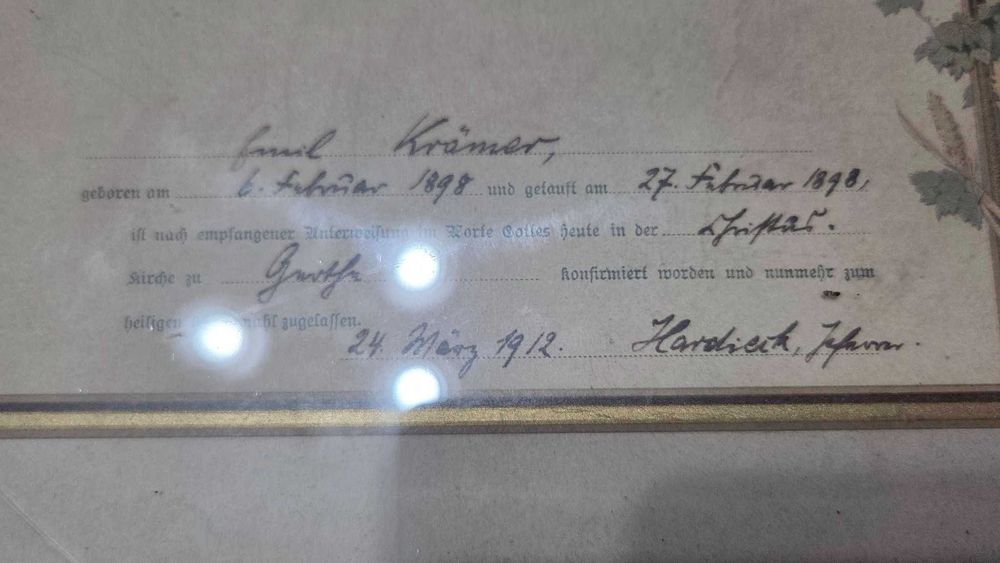 Emil Krämer,
geboren am 6. Februar 1898 und getauft am 27. Februar 1898,
ist nach empfangener Unterweisung im Worte Gottes heute in der Christus-
Kirche zu Gerthe konfirmiert worden und nunmehr zum
heiligen zugelassen.
24. März 1912. Hardieck, Pfarrer.